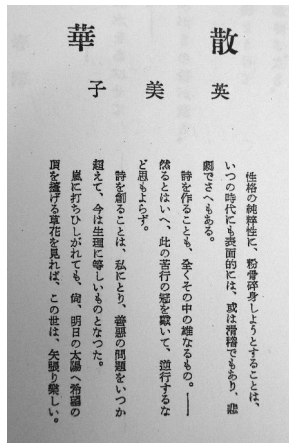 散華
英美子
性格の純粋性に、粉骨碎身しようとすることは、
いつの時代にも表面的には、或は滑稽でもあり、悲
劇でさへもある。
詩を作ることも、全くその中の雄なるもの。――
然るとはいへ、此の苦行の冠を戴いて、逆行するな
ど思もよらず。
詩を創ることは、私にとり、善悪の問題をいつか
超えて、今は生理に等しいものとなつた。
嵐に打ちひしがれても、尙、明日の太陽へ希望の
頂を擡げる草花を見れば、この世は、矢張り樂しい。